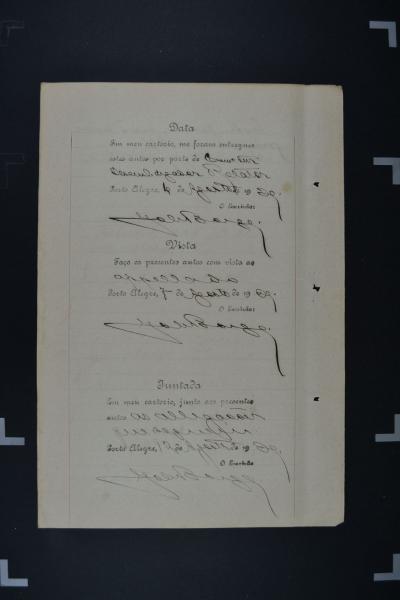 Data
Em meu cartorio, me foram entregues
estes autos por parte do
Desembargador Relator
Porto Alegre, 4 de Agosto de 19
O Escrivão
Vista
Faço os presentes autos com vista ao
appellado
Porto Alegre, 7 de Agosto de 19
O Escrivão
Juntada
Em meu cartorio, junto aos presentes
autos as allegações
que seguem
Porto Alegre, de Agosto de 19
O Escrivão